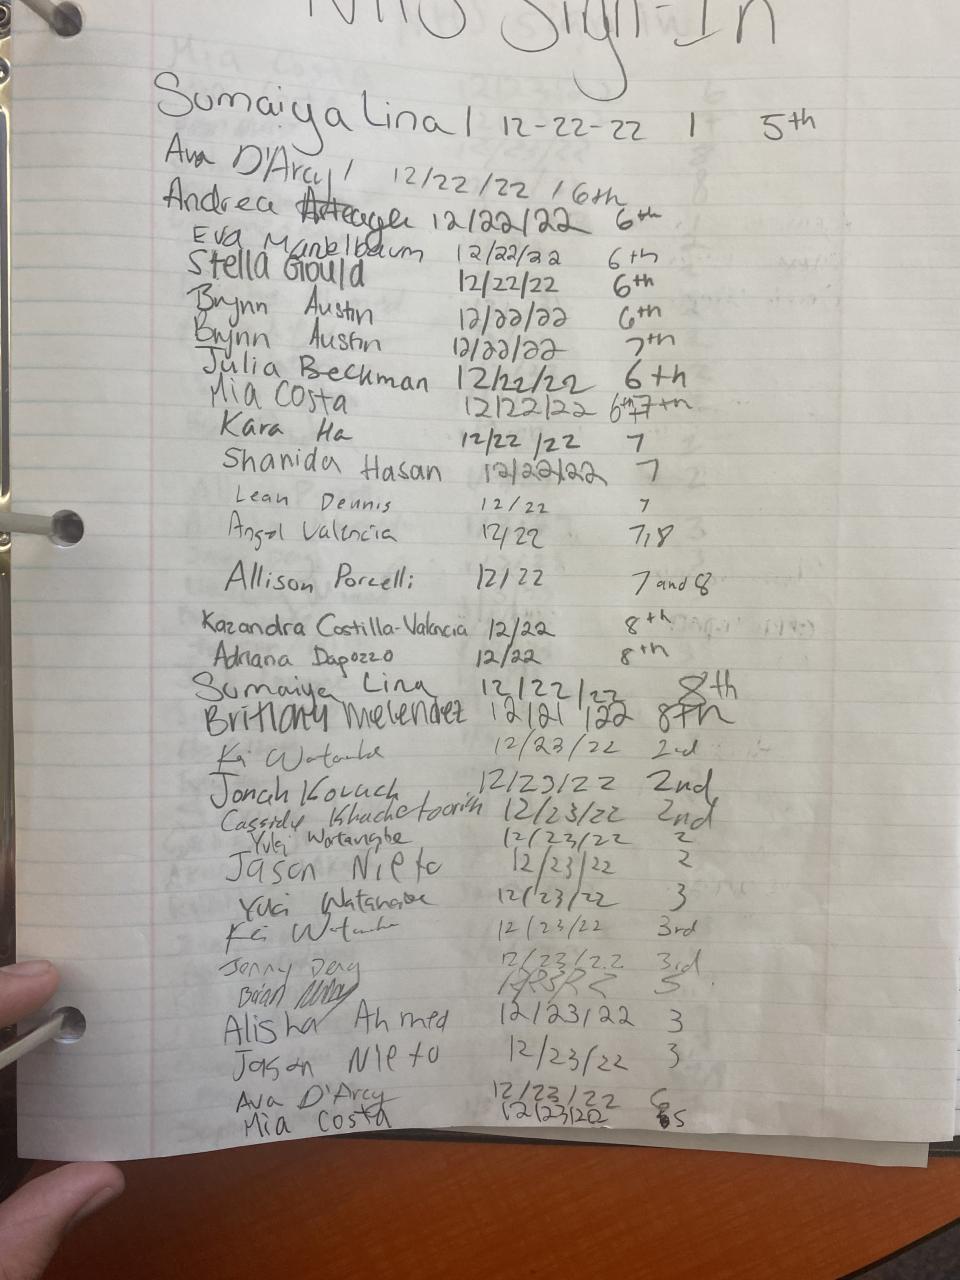 NHS Sign-In
Sumaiya Lina | 12-22-22 | 5th
Ava D'Arcy / 12/22/22 / 6th
Andrea 12/22/22 6th
Eva Mandelbaum 12/22/22 6th
Stella Gould 12/22/22 6th
Brynn Austin 12/22/22 6th
Brynn Austin 12/22/22 7th
Julia Beckman 12/22/22 6th
Mia Costa 12/22/22 6th 7th
Kara Ha 12/22/22 7
Shanida Hasan 12/22/22 7
Leah Dennis 12/22 7
Angel Valencia 12/22 7,8
Allison Porcelli 12/22 7 and 8
Kazandra Costilla-Valencia 12/22 8th
Adriana Dapozzo 12/22 8th
Sumaiya Lina 12/22/22 8th
Brittany Melendez 12/21/22 8th
Kei Watanabe 12/23/22 2nd
Jonah Kovach 12/23/22 2nd
Cassidy Khachetoorian 12/23/22 2nd
Yuki Watanabe 12/23/22 2
Jason Nieto 12/23/22 2
Yuki Watanabe 12/23/22 3
Kei Watanabe 12/23/22 3rd
Jenny Deng 12/23/22 3rd
Brian
Alisha Ahmed 12/23/22 3
Jason Nieto 12/23/22 3
Ava D'Arcy 12/23/22 6
Mia Costa 12/23/22 s